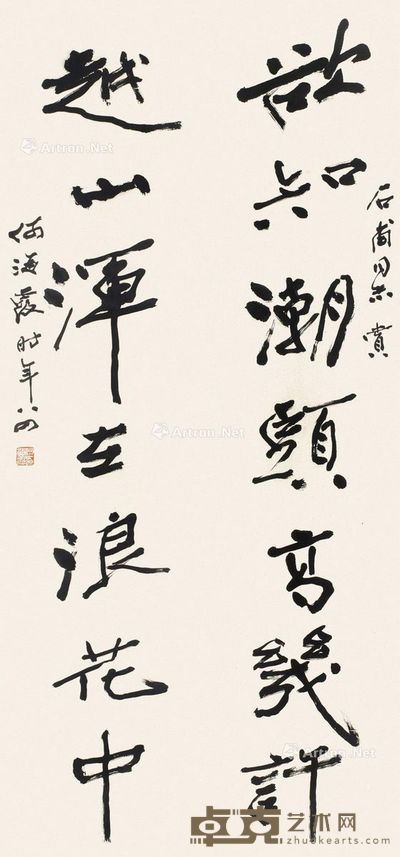 石甫同志赏
欲知潮頭高幾許
越山渾在浪花中
何海霞时年八四
Artron.Net
Artron.Net
Artron.Net
Artron.Net
卓克艺术网
zhuokearts.com